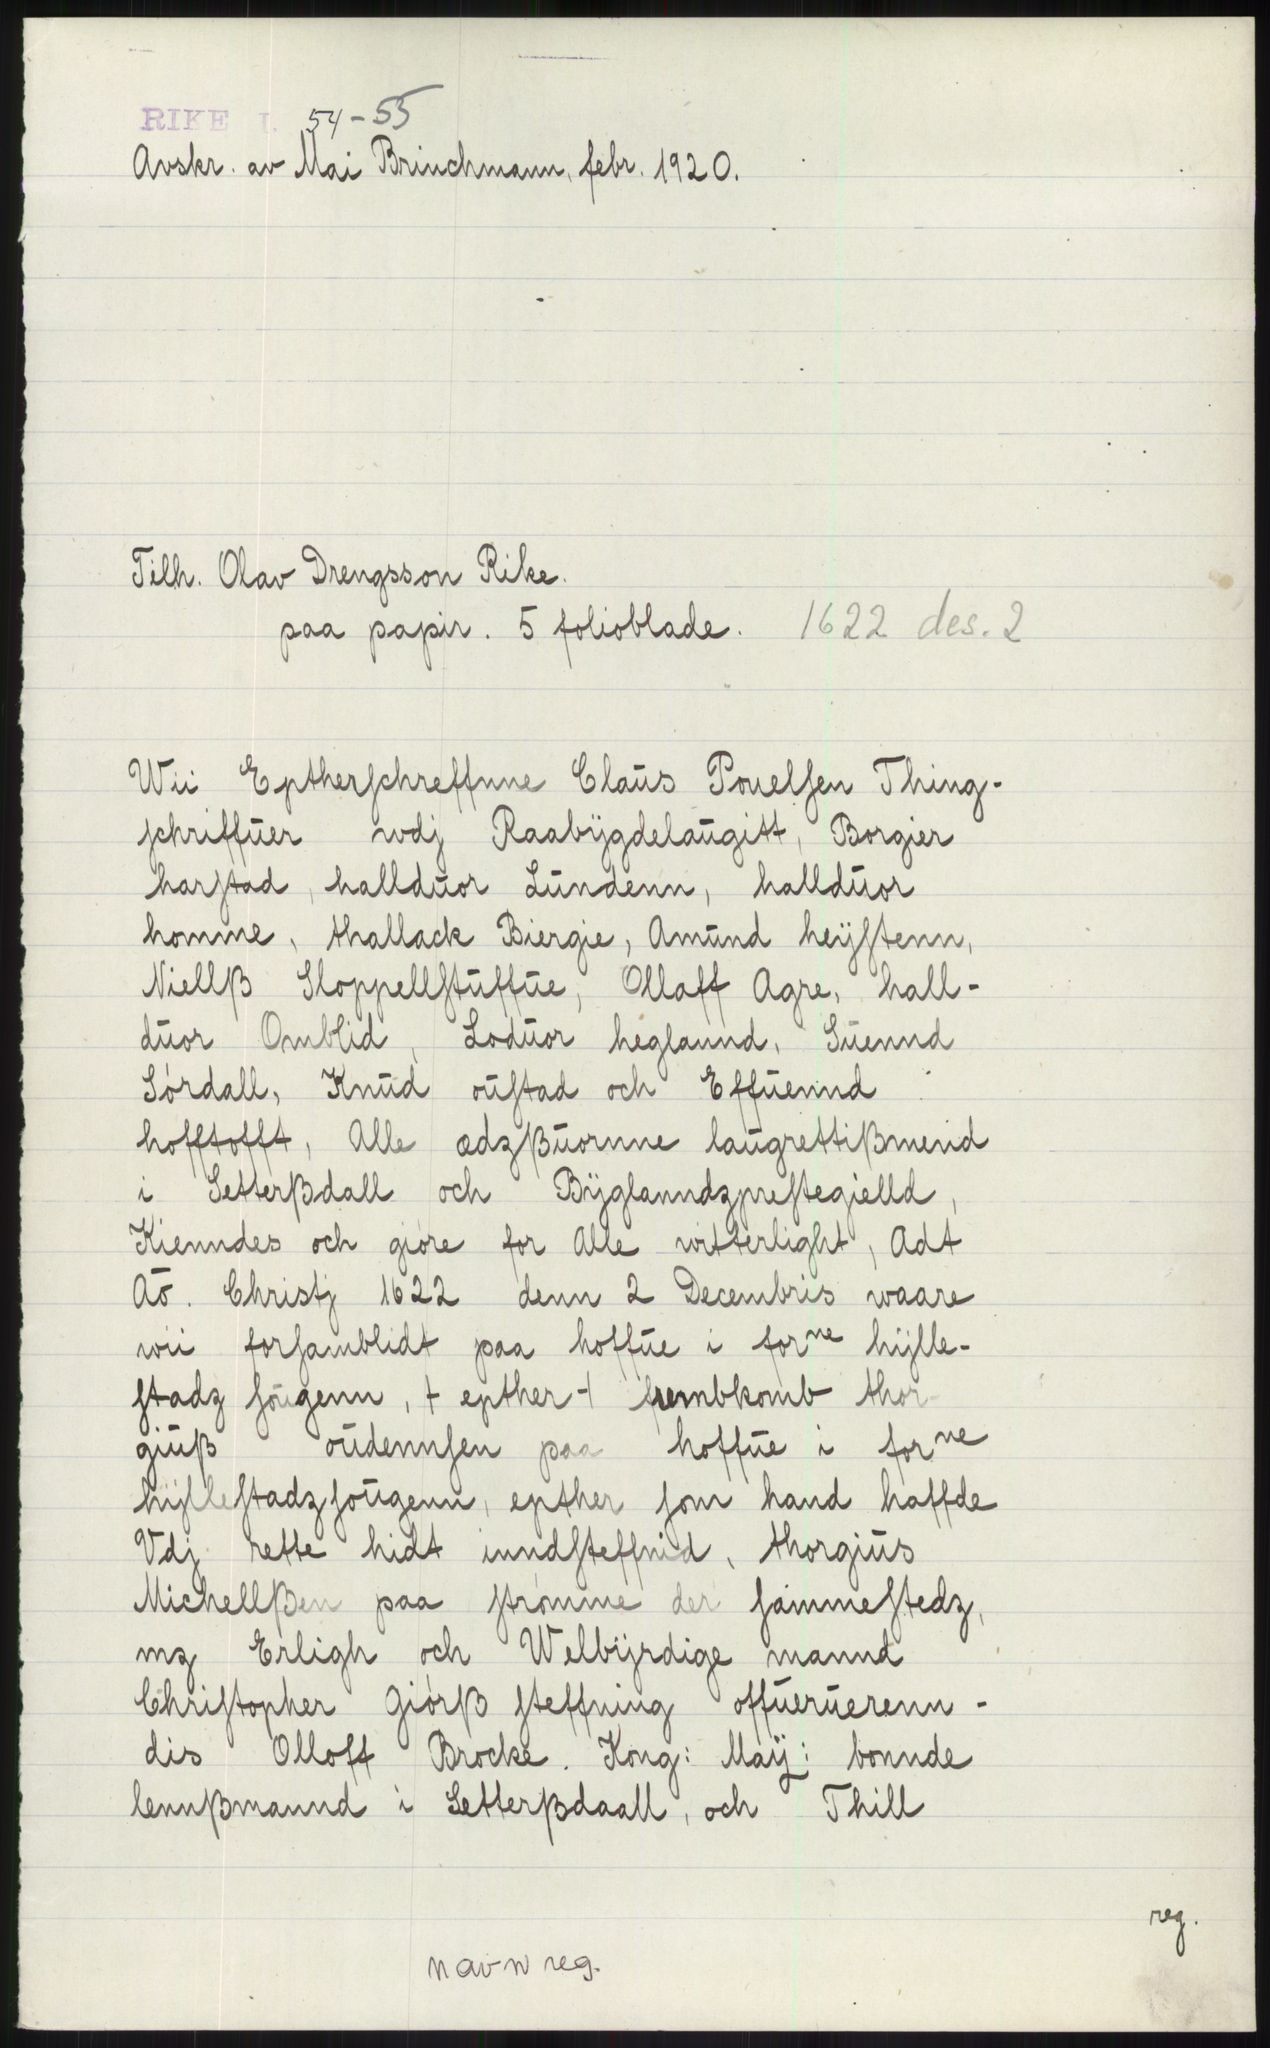 RIKE I. 54-55
Avskr. av Mai Brinchmann, febr. 1920.
Tilh. Olav Drengsson Rike.
paa papir. 5 folioblade. 1622 des. 2
Wii Eptherſchreffnne Claŭs Pouelſen Thing-
ſchriffŭer wdj Raabÿgdelaŭgitt, Borgier
harſtad, halldŭor Lŭndenn, halldŭor
homme, thallack Biergie, Amŭnd heÿſtenn,
Niellß Sloppellſtŭffŭe, Ollaff Agre, hall-
dŭor Omblid, Lodŭor heglannd, Sŭennd
Sórdall, Knŭd oŭſtad och Effŭennd
hofftofft, Alle ædzßŭornne laŭgrettißmend
i Setterßdall och Bÿglanndzpreſtegielld,
Kienndes och gióre for Alle witterlight, Adt
Aō. Chriſtj 1622 denn 2 Decembris waare
wii forſamblidt paa hoffŭe i forne hÿlle-
ſtadz ſoŭgenn, + epther + frembkomb thor
giŭß oŭdennſen paa hoffŭe i forne
hÿlleſtadzſoŭgenn, epther ſom hand haffde
Vdj rette hidt inndſteffnid, thorgiŭs
Michellßen paa ſtrómme der ſammeſtedz,
mz Erligh och Welbÿrdige mannd
Chriſtopher Giórß ſteffning offŭerŭerenn-
dis Olloff Brocke. Kong: Maÿ: bonnde
lennßmannd i Setterßdaall, och Thill
reg.
navn reg.